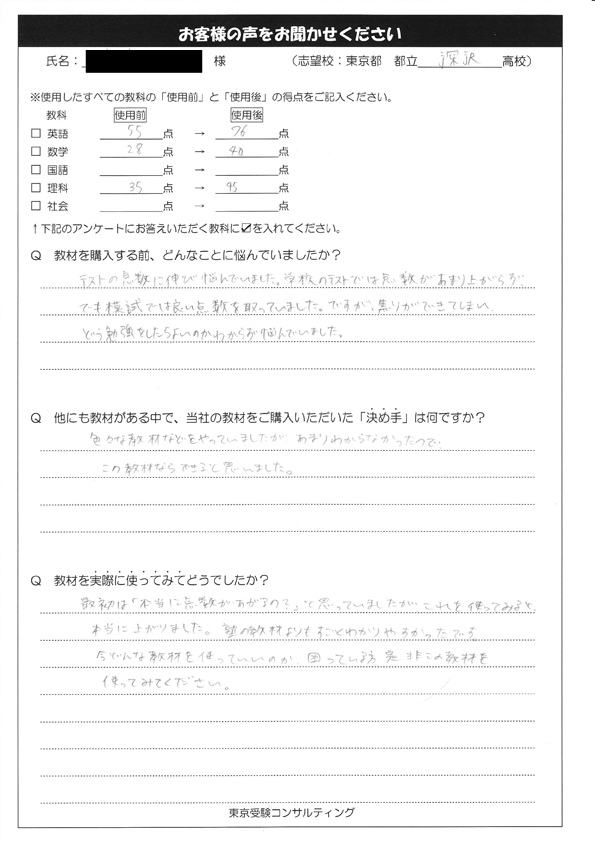 お客様の声をお聞かせください
氏名： 様 （志望校：東京都 都立 深沢 高校）
※使用したすべての教科の「使用前」と「使用後」の得点をご記入ください。
教科 使用前 使用後
□ 英語 55 点 → 76 点
□ 数学 28 点 → 40 点
□ 国語 点 → 点
□ 理科 35 点 → 45 点
□ 社会 点 → 点
↑下記のアンケートにお答えいただく教科に☑を入れてください。
Q 教材を購入する前、どんなことに悩んでいましたか？
テストの点数に伸び悩んでいました。学校のテストでは点数があまり上がらず、
でも模試では良い点数を取っていました。ですが、焦りがでてきてしまい、
どう勉強をしたらよいのかわからず悩んでいました。
Q 他にも教材がある中で、当社の教材をご購入いただいた「決め手」は何ですか？
色々な教材などをやっていましたが あまりわからなかったので、
この教材ならできると思いました。
Q 教材を実際に使ってみてどうでしたか？
最初は「本当に点数があがるの？」と思っていましたが これを使ってみると、
本当に上がりました。塾の教材よりもすごくわかりやすかったです
今どんな教材を使っていいのか、困っている方 是非この教材を
使ってみてください。
東京受験コンサルティング